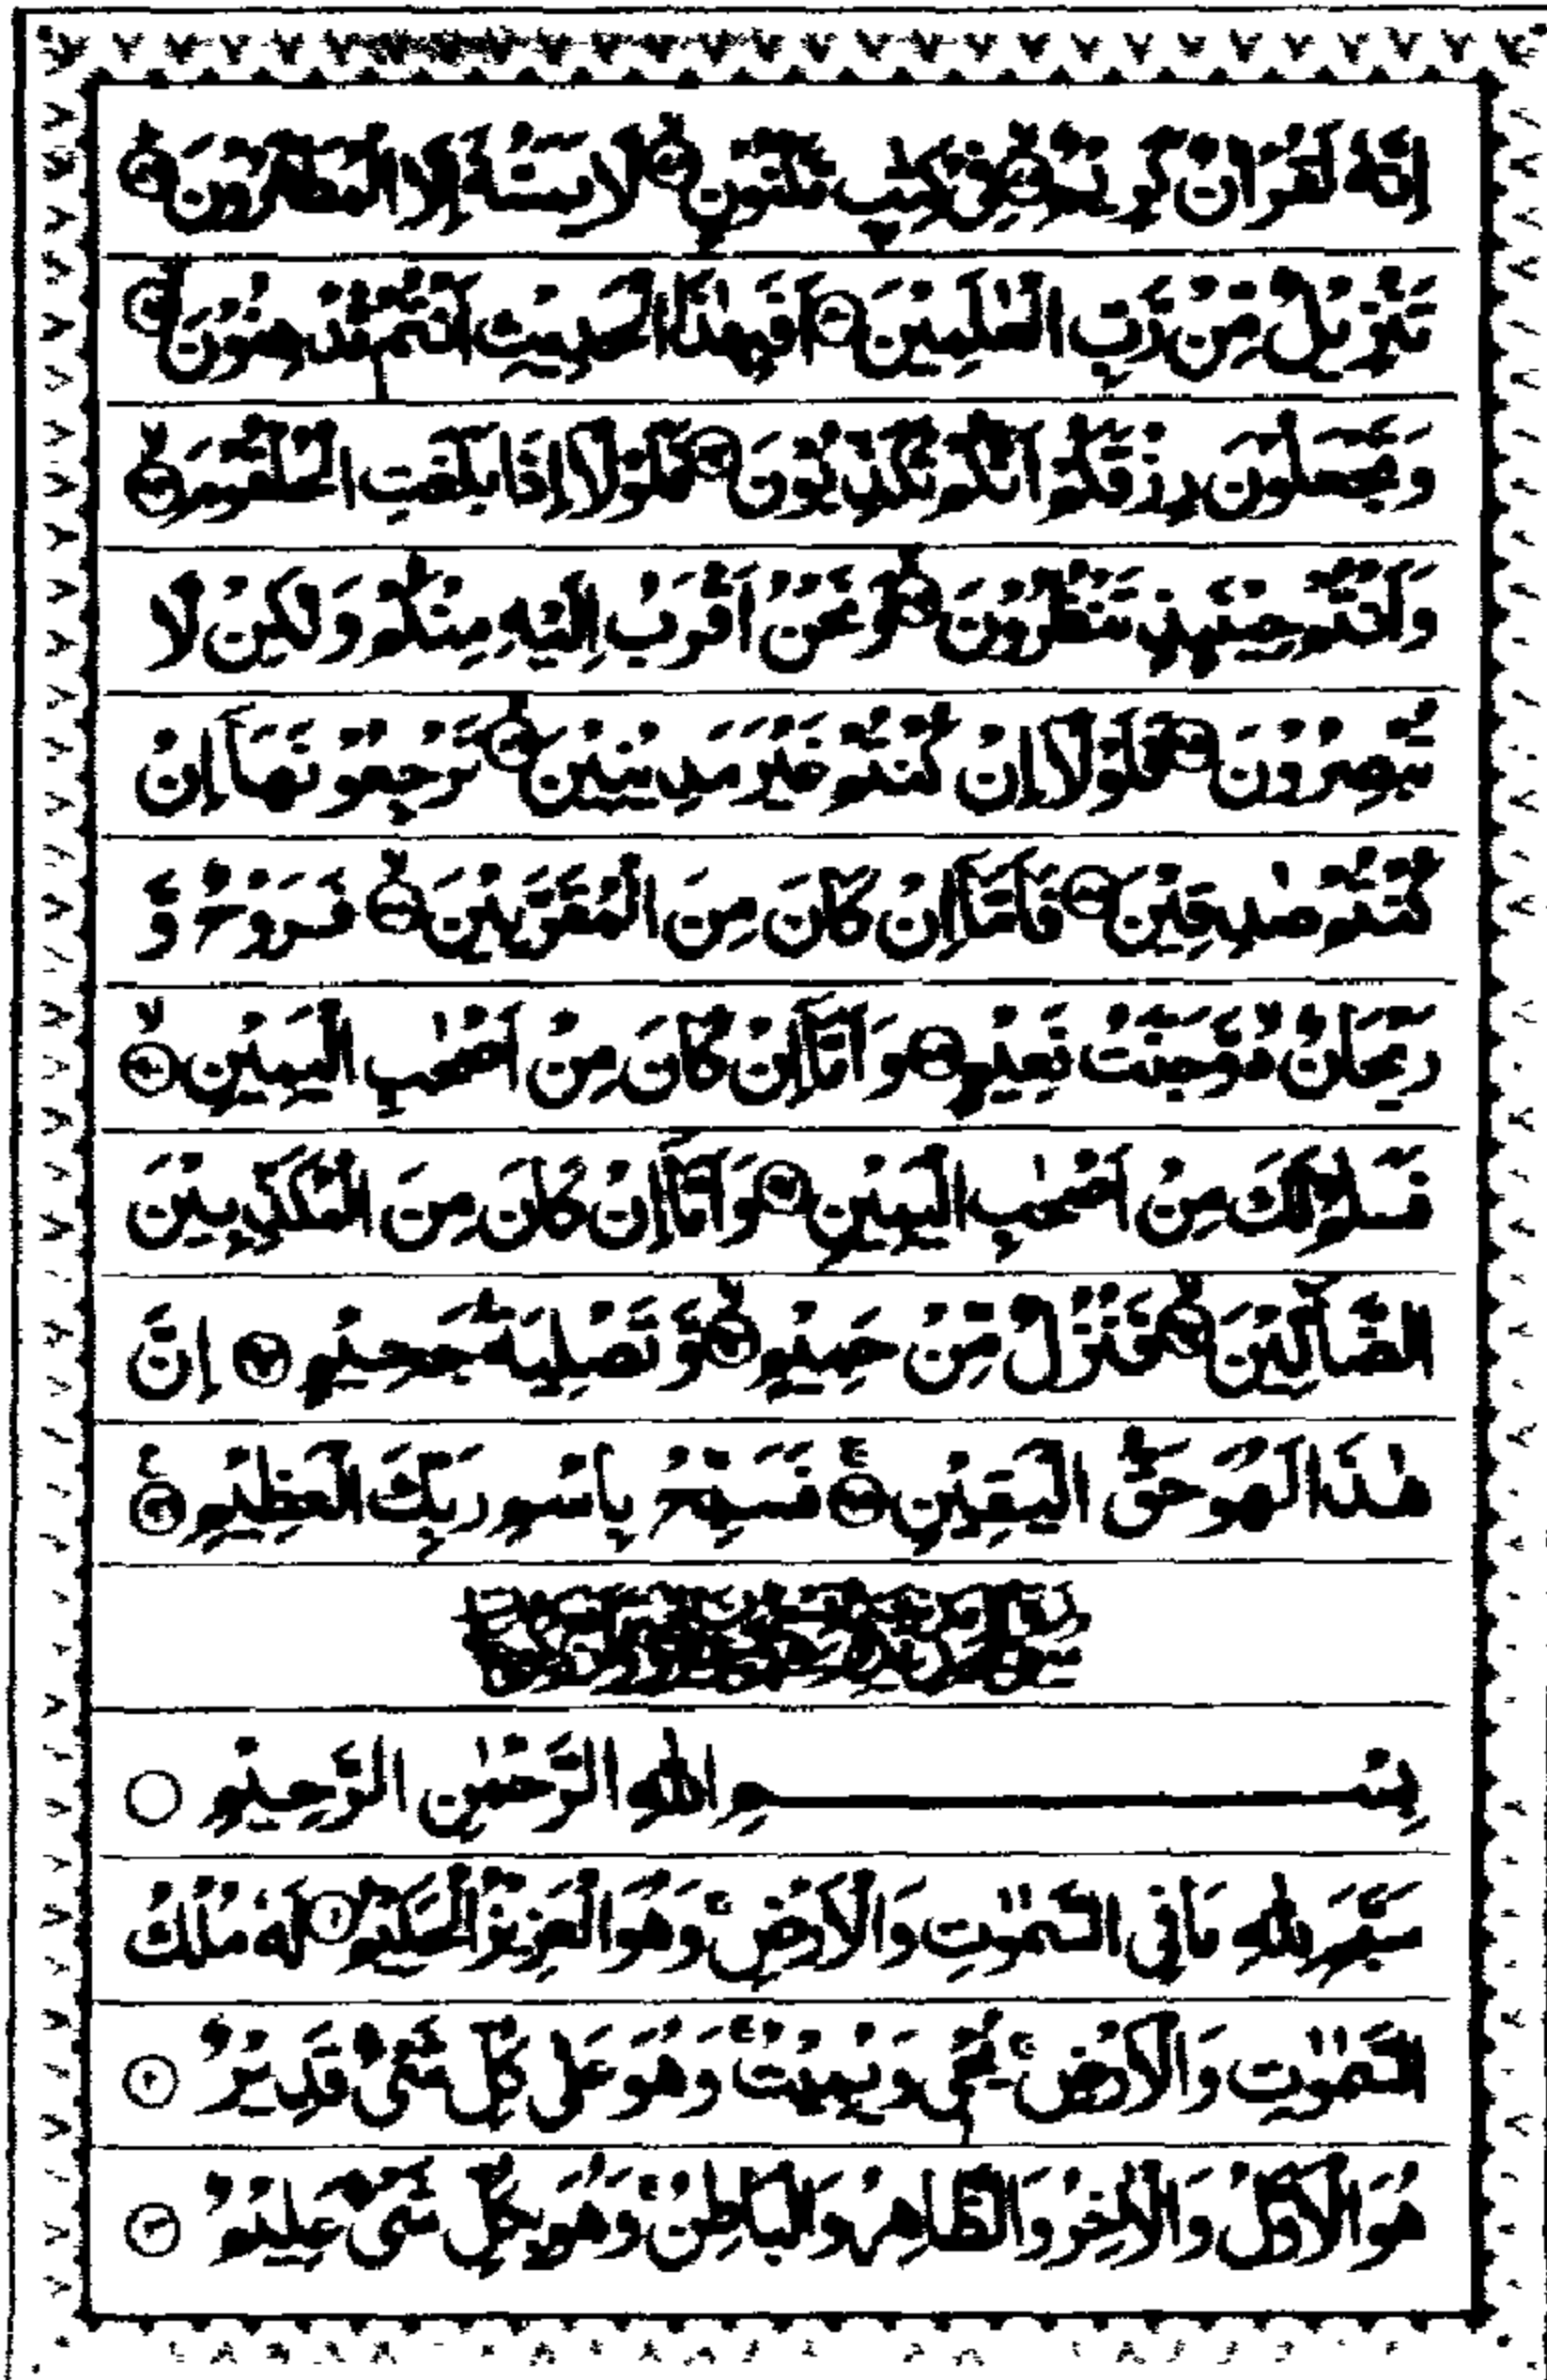 اِنَّهٗ لَقُرْاٰنٌ كَرِيْمٌ ۙ﴿۷۷﴾ فِيْ كِتٰبٍ مَّكْنُوْنٍ ۙ﴿۷۸﴾ لَّا يَمَسُّهٗۤ اِلَّا الْمُطَهَّرُوْنَ ؕ﴿۷۹﴾
تَنْزِيْلٌ مِّنْ رَّبِّ الْعٰلَمِيْنَ ﴿۸۰﴾ اَفَبِهٰذَا الْحَدِيْثِ اَنْتُمْ مُّدْهِنُوْنَ ۙ﴿۸۱﴾
وَ تَجْعَلُوْنَ رِزْقَكُمْ اَنَّكُمْ تُكَذِّبُوْنَ ﴿۸۲﴾ فَلَوْ لَاۤ اِذَا بَلَغَتِ الْحُلْقُوْمَ ۙ﴿۸۳﴾
وَ اَنْتُمْ حِيْنَىِٕذٍ تَنْظُرُوْنَ ۙ﴿۸۴﴾ وَ نَحْنُ اَقْرَبُ اِلَيْهِ مِنْكُمْ وَ لٰكِنْ لَّا
تُبْصِرُوْنَ ﴿۸۵﴾ فَلَوْ لَاۤ اِنْ كُنْتُمْ غَيْرَ مَدِيْنِيْنَ ۙ﴿۸۶﴾ تَرْجِعُوْنَهَاۤ اِنْ
كُنْتُمْ صٰدِقِيْنَ ﴿۸۷﴾ فَاَمَّاۤ اِنْ كَانَ مِنَ الْمُقَرَّبِيْنَ ۙ﴿۸۸﴾ فَرَوْحٌ وَّ
رَيْحَانٌ ۙ۬ وَّ جَنَّتُ نَعِيْمٍ ﴿۸۹﴾ وَ اَمَّاۤ اِنْ كَانَ مِنْ اَصْحٰبِ الْيَمِيْنِ ۙ﴿۹۰﴾
فَسَلٰمٌ لَّكَ مِنْ اَصْحٰبِ الْيَمِيْنِ ﴿۹۱﴾ وَ اَمَّاۤ اِنْ كَانَ مِنَ الْمُكَذِّبِيْنَ
الضَّآلِّيْنَ ۙ﴿۹۲﴾ فَنُزُلٌ مِّنْ حَمِيْمٍ ۙ﴿۹۳﴾ وَّ تَصْلِيَةُ جَحِيْمٍ ﴿۹۴﴾ اِنَّ
هٰذَا لَهُوَ حَقُّ الْيَقِيْنِ ۚ﴿۹۵﴾ فَسَبِّحْ بِاسْمِ رَبِّكَ الْعَظِيْمِ ﴿۹۶﴾
بِسْمِ اللّٰهِ الرَّحْمٰنِ الرَّحِيْمِ
سَبَّحَ لِلّٰهِ مَا فِي السَّمٰوٰتِ وَ الْاَرْضِ ۚ وَ هُوَ الْعَزِيْزُ الْحَكِيْمُ ﴿۱﴾ لَهٗ مُلْكُ
السَّمٰوٰتِ وَ الْاَرْضِ ۚ يُحْيٖ وَ يُمِيْتُ ۚ وَ هُوَ عَلٰى كُلِّ شَيْءٍ قَدِيْرٌ ﴿۲﴾
هُوَ الْاَوَّلُ وَ الْاٰخِرُ وَ الظَّاهِرُ وَ الْبَاطِنُ ۚ وَ هُوَ بِكُلِّ شَيْءٍ عَلِيْمٌ ﴿۳﴾